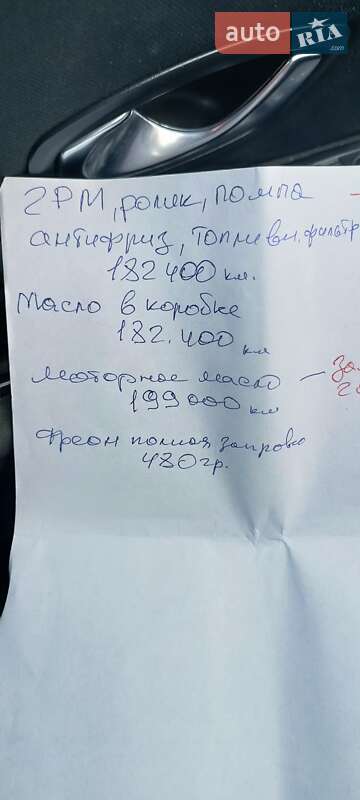 auto RIA .com
ГРМ, ролик, помпа
антифриз, топливн. фильтр
182 400 км.
Масло в коробке
182.400 км
Моторное масло —
199 000 км
Фреон полная заправка
480 гр.